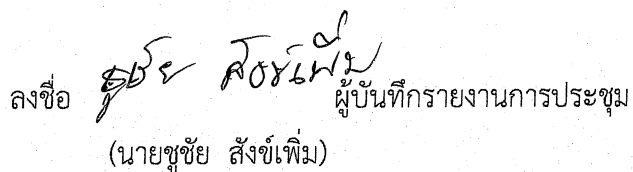 ลงชื่อ ชูชัย สังข์เพิ่ม ผู้บันทึกรายงานการประชุม
(นายชูชัย สังข์เพิ่ม)